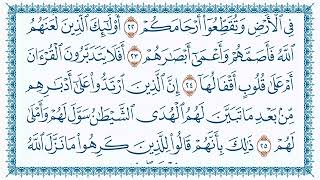 فِى ٱلْأَرْضِ وَتُقَطِّعُوٓا۟ أَرْحَامَكُمْ ٢٢ أُو۟لَٰٓئِكَ ٱلَّذِينَ لَعَنَهُمُ
ٱللَّهُ فَأَصَمَّهُمْ وَأَعْمَىٰٓ أَبْصَٰرَهُمْ ٢٣ أَفَلَا يَتَدَبَّرُونَ ٱلْقُرْءَانَ
أَمْ عَلَىٰ قُلُوبٍ أَقْفَالُهَآ ٢٤ إِنَّ ٱلَّذِينَ ٱرْتَدُّوا۟ عَلَىٰٓ أَدْبَٰرِهِم
مِّنۢ بَعْدِ مَا تَبَيَّنَ لَهُمُ ٱلْهُدَى ٱلشَّيْطَٰنُ سَوَّلَ لَهُمْ وَأَمْلَىٰ
لَهُمْ ٢٥ ذَٰلِكَ بِأَنَّهُمْ قَالُوا۟ لِلَّذِينَ كَرِهُوا۟ مَا نَزَّلَ ٱللَّهُ